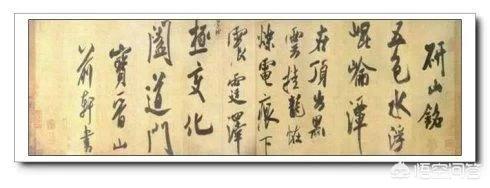 研山銘
五色水浮
崐崘潭
在頂出黑
雲挂龍恠
爍電痕下
震霆澤
極變化
闔道門
寶晉山
前軒書
悟空问答